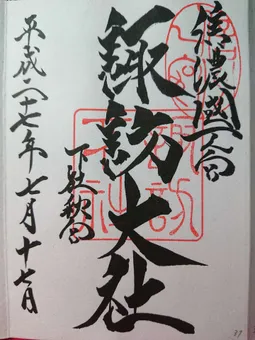 信濃國一之宮
諏訪大社
下社秋宮
平成二十七年七月十七日